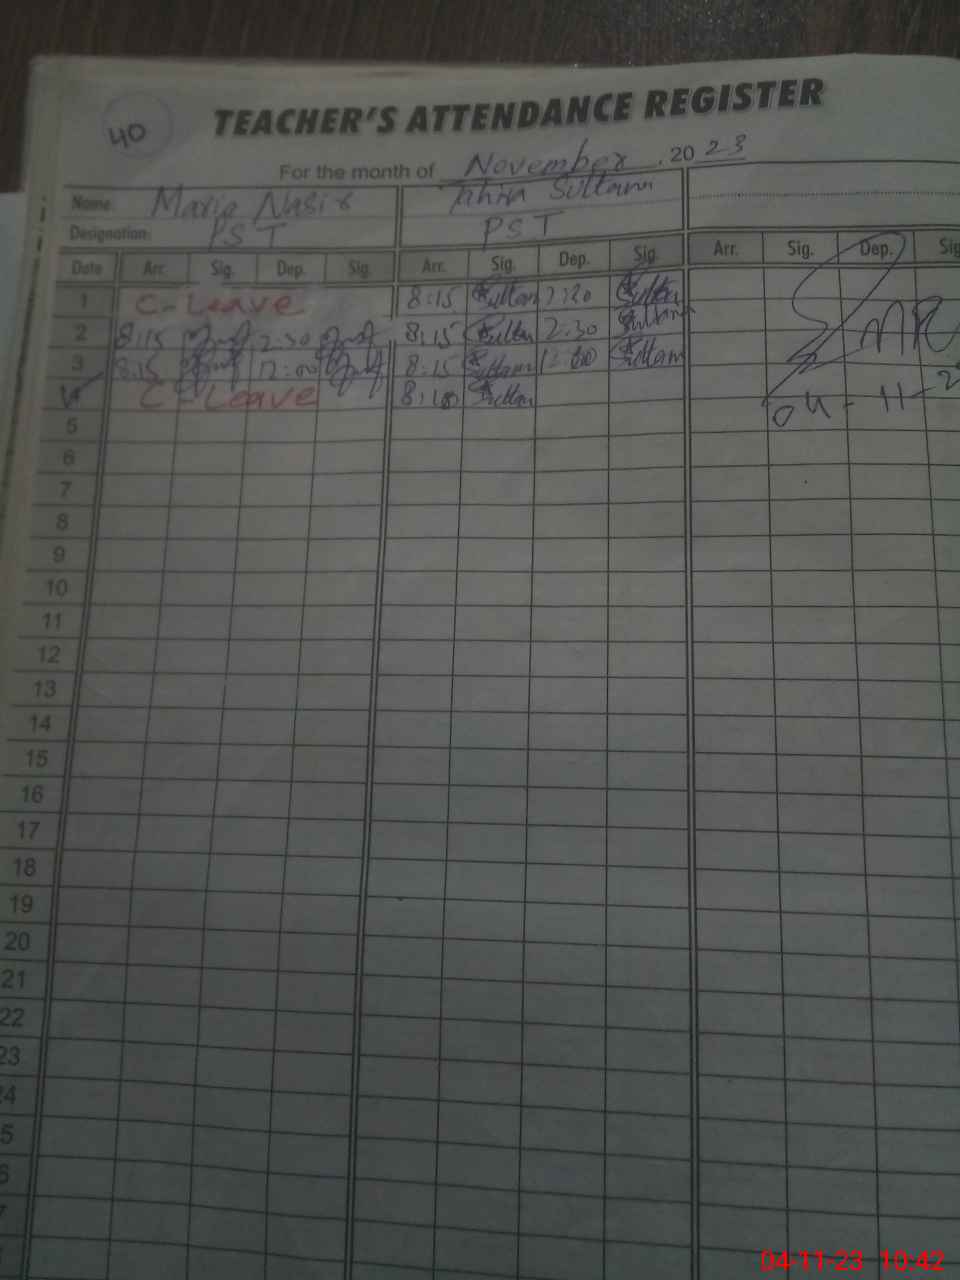 40
TEACHER'S ATTENDANCE REGISTER
For the month of November, 2023
Name: Maria Nasir Tahira Sultana
Designation: PST PST
Date Arr. Sig. Dep. Sig. Arr. Sig. Dep. Sig. Arr. Sig. Dep. Sig
1 C-Leave 8:15 Sultana Sultana
2 8:15 2:30 8:15 Sultana 2:30 Sultana
3 8:15 12:00 8:15 Sultana 12:00 Sultana
4 C-Leave 8:10 Sultana
04-11-2
5
6
7
8
9
10
11
12
13
14
15
16
17
18
19
20
21
22
23
24
5
6
7
04-11-23 10:42